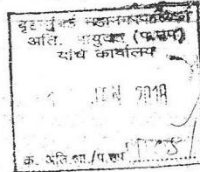 बृहन्मुंबई महानगरपालिका
अति. आयुक्त (प.उप)
यांचे कार्यालय
JUN 2018
क्र. अति.आ./प.उप